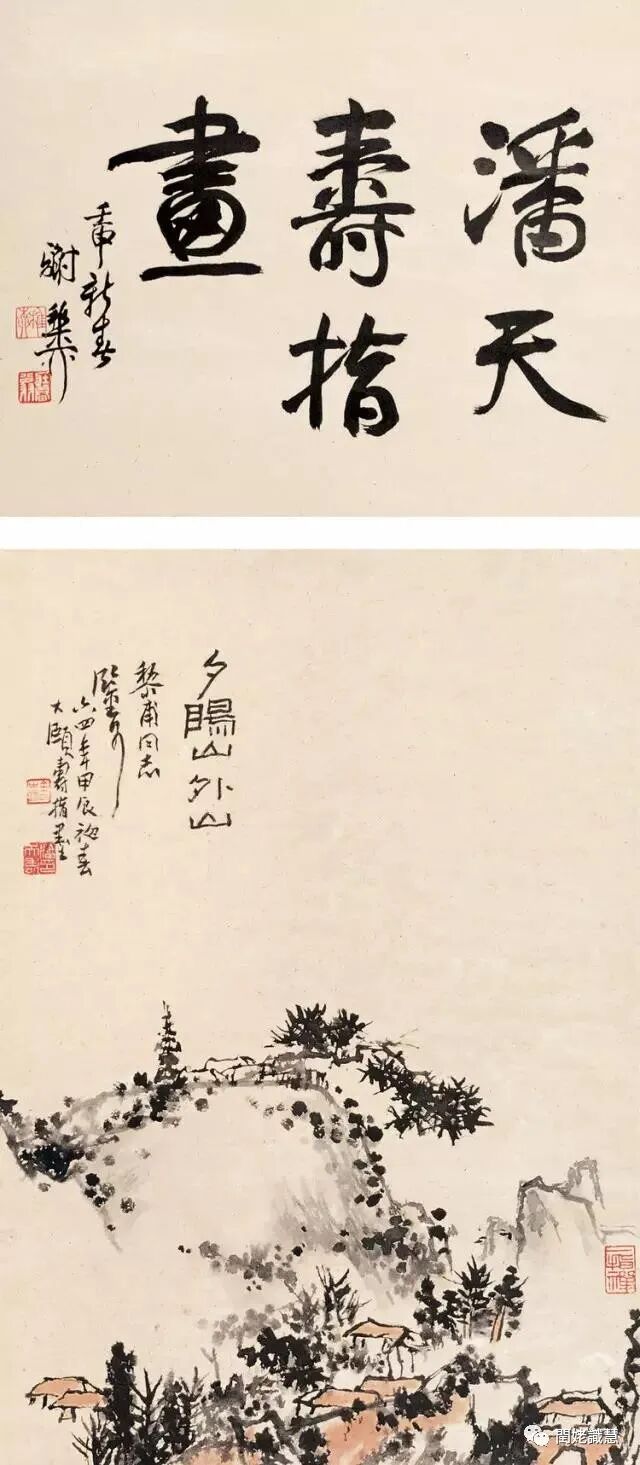 潘天
壽指
畫
壬申新春
謝稚柳
夕陽山外山
黎甫同志
鑒可
六四年甲辰初春
大頤壽指墨
閏姥識慧